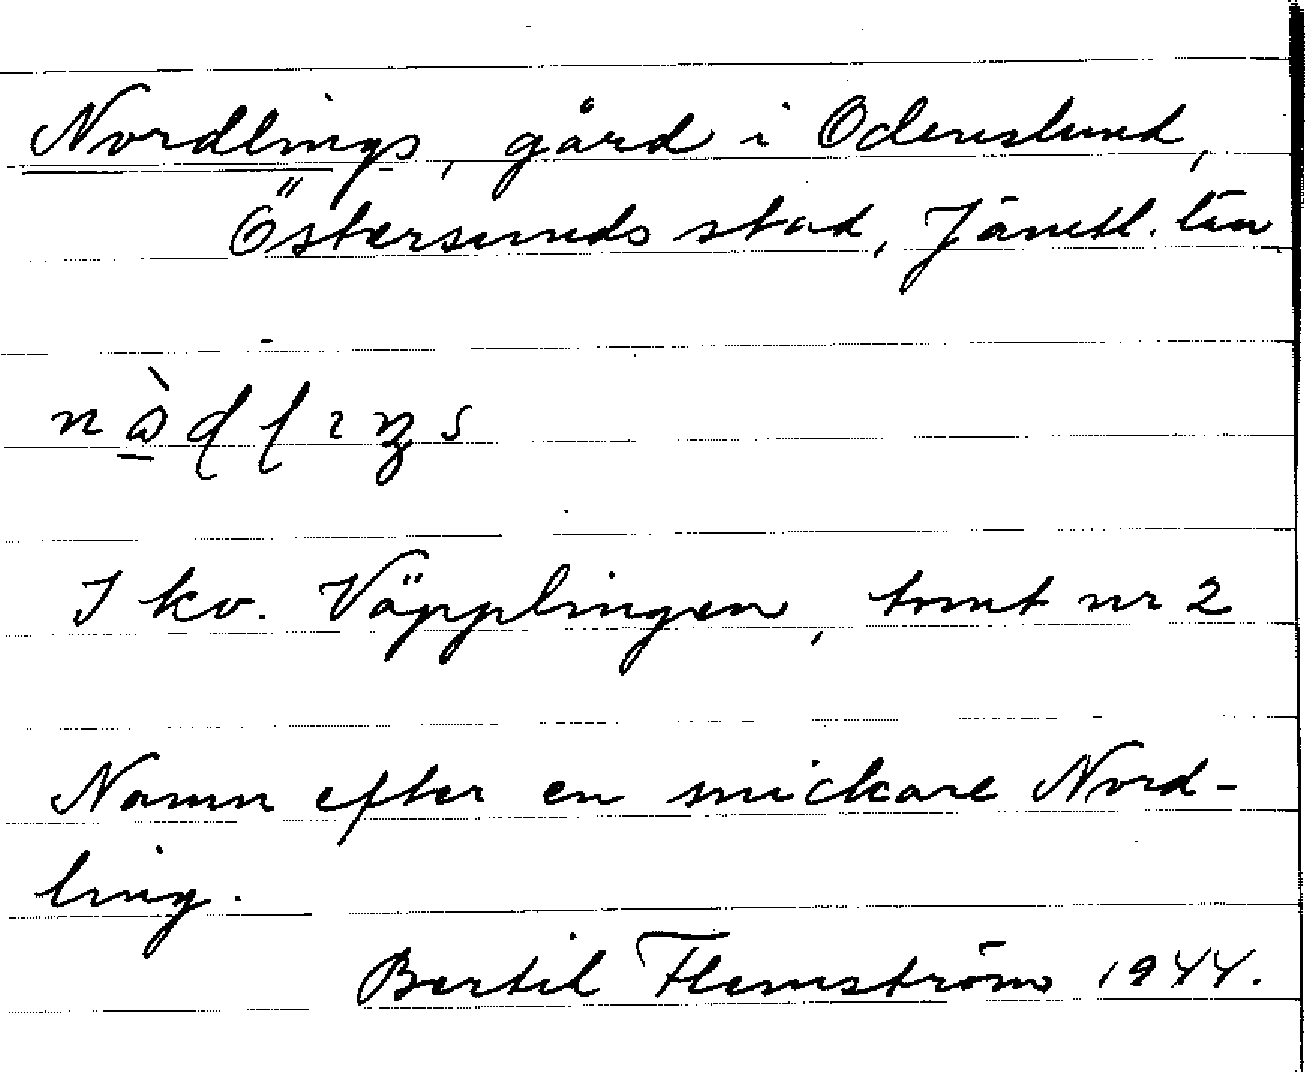 Nordlings, gård i Odenslund,
Östersunds stad, Jämtl. län
I kv. Väpplingen, tomt nr 2
Namn efter en snickare Nord-
ling.
Bertil Flemström 1944.